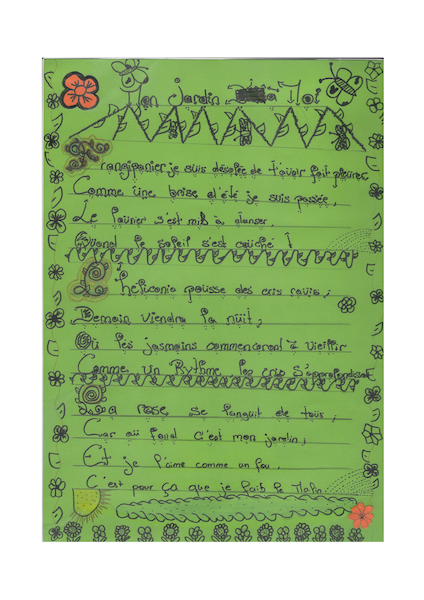 Mon Jardin à Moi
Frangipanier je suis désolée de t'avoir fait pleurer
Comme une brise d'été je suis passée,
Le laurier s'est mis à danser,
Quand le soleil s'est couché !
L'héliconia pousse des cris ravis,
Demain viendra la nuit,
Où les jasmins commenceront à vieillir
Comme un Rythme les cris s'approfondissent
La rose se languit de tous,
Car au fond c'est mon jardin,
Et je l'aime comme un fou,
C'est pour ça que je fais le